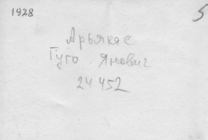 1928
5
Арьякас
Гуго Янович
24452